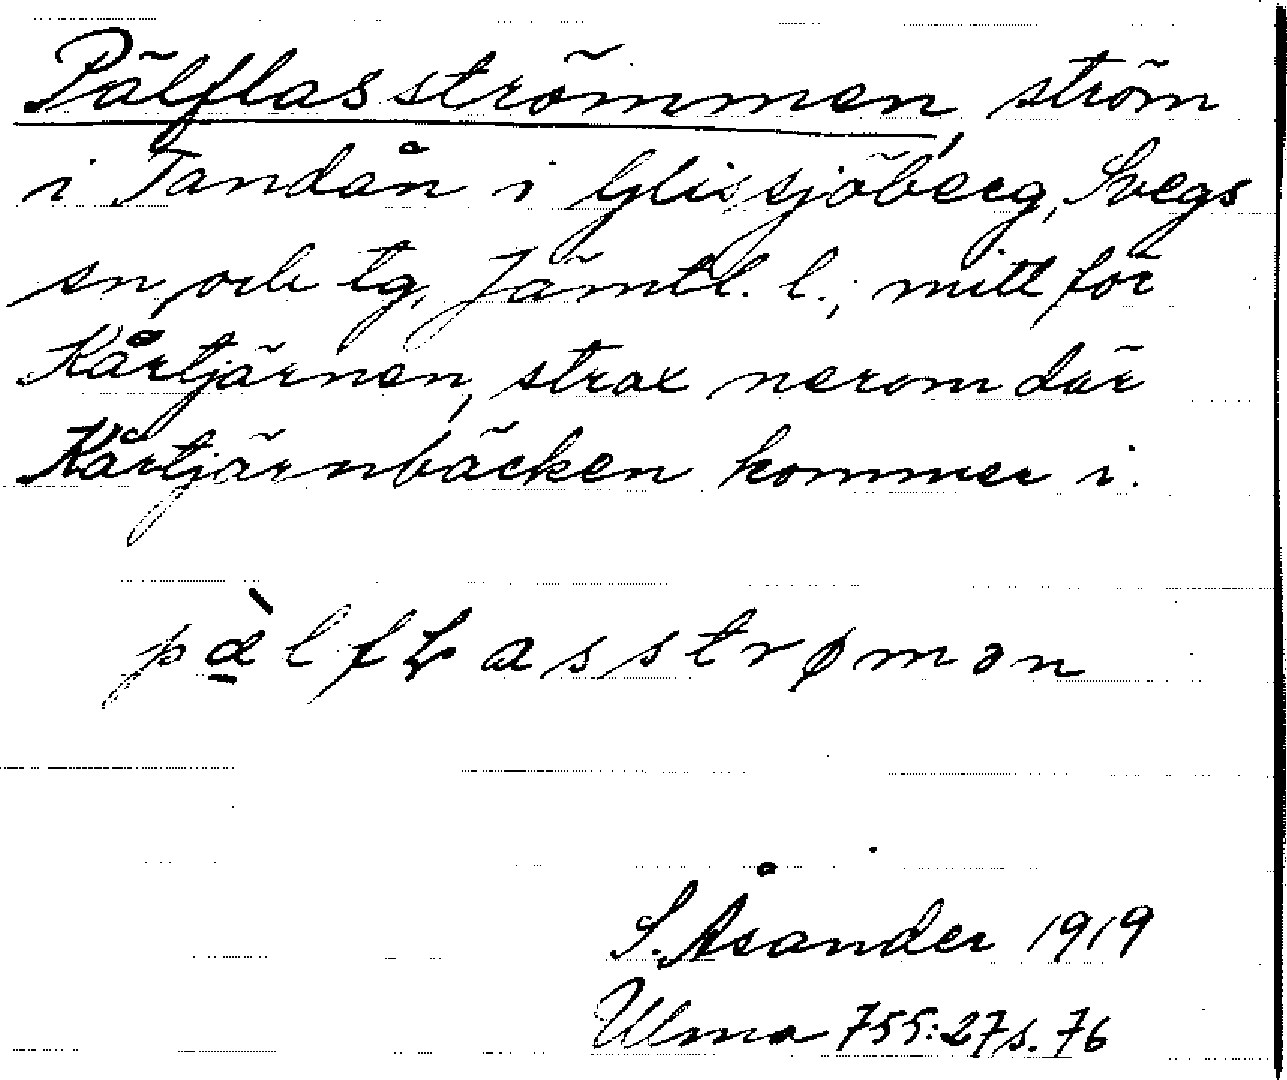 Pälflasströmmen, ström
i Tandån i Glissjöberg, Svegs
sn och tg, Jämtl. l.; mitt för
Kårtjärnen, strax nerom där
Kårtjärnbäcken kommer i.
pæ̀lfⱢasstrømən
S. Åsander 1919
Ulma 755:27 s. 76